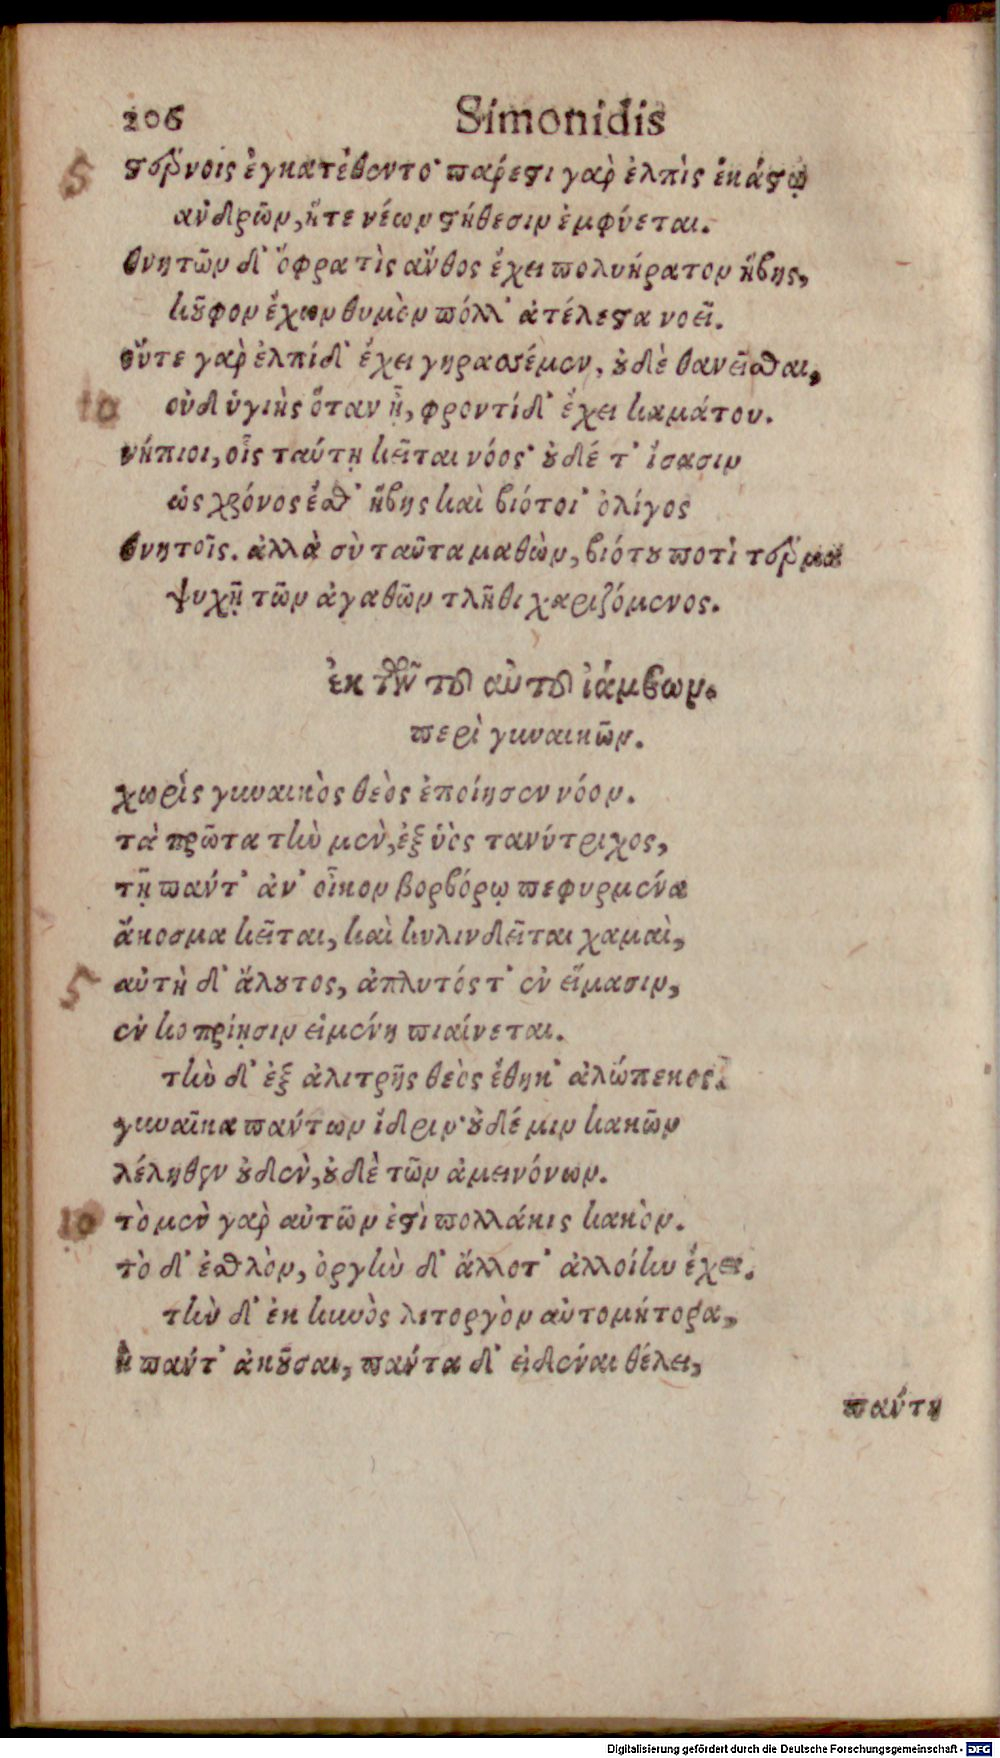 206 Simonidis
5 στέρνοις ἐγκατέθεντο· πάρεστι γὰρ ἐλπὶς ἑκάστῳ
ἀνδρῶν, ἥτε νέων στήθεσιν ἐμφύεται.
θνητῶν δ' ὄφρα τὶς ἄνθος ἔχει πολυήρατον ἥβης,
κοῦφον ἔχων θυμὸν πόλλ' ἀτέλεστα νοεῖ.
οὔτε γὰρ ἐλπίδ' ἔχει γηρασσέμεν, οὐδὲ θανεῖσθαι,
10 οὐδ ὑγιὴς ὅταν ᾖ, φροντίδ' ἔχει καμάτου.
νήπιοι, οἷς ταύτῃ κεῖται νόος· οὐδέ τ' ἴσασιν
ὡς χρόνος ἔσθ' ἥβης καὶ βιότοι' ὀλίγος
θνητοῖς. ἀλλὰ σὺ ταῦτα μαθὼν, βιότου ποτὶ τέρμα
ψυχῇ τῶν ἀγαθῶν τλῆθι χαριζόμενος.
ἐκ τῶν τοῦ αὐτοῦ ἰάμβων.
περὶ γυναικῶν.
χωρὶς γυναικὸς θεὸς ἐποίησεν νόον.
τὰ πρῶτα τὴν μὲν, ἐξ ὑὸς τανύτριχος,
τῇ πάντ' ἀν' οἶκον βορβόρῳ πεφυρμένα
ἄκοσμα κεῖται, καὶ κυλινδεῖται χαμαὶ,
5 αὐτὴ δ' ἄλουτος, ἀπλυτός τ' ἐν εἵμασιν,
ἐν κοπρίῃσιν εἱμένη πιαίνεται.
τὴν δ' ἐξ ἀλιτρῆς θεὸς ἔθηκ' ἀλώπεκος.
γυναῖκα πάντων ἴδριν· οὐδέ μιν κακῶν
λέληθεν οὐδὲν, οὐδὲ τῶν ἀμεινόνων.
10 τὸ μὲν γὰρ αὐτῶν ἐστὶ πολλάκις κακὸν.
τὸ δ' ἐσθλὸν, ὀργὴν δ' ἄλλοτ' ἀλλοίην ἔχει.
τὴν δ' ἐκ κυνὸς λιτοργὸν αὐτομήτορα,
ἣ πάντ' ἀκοῦσαι, πάντα δ' εἰδέναι θέλει,
πάντη
Digitalisierung gefördert durch die Deutsche Forschungsgemeinschaft - DFG